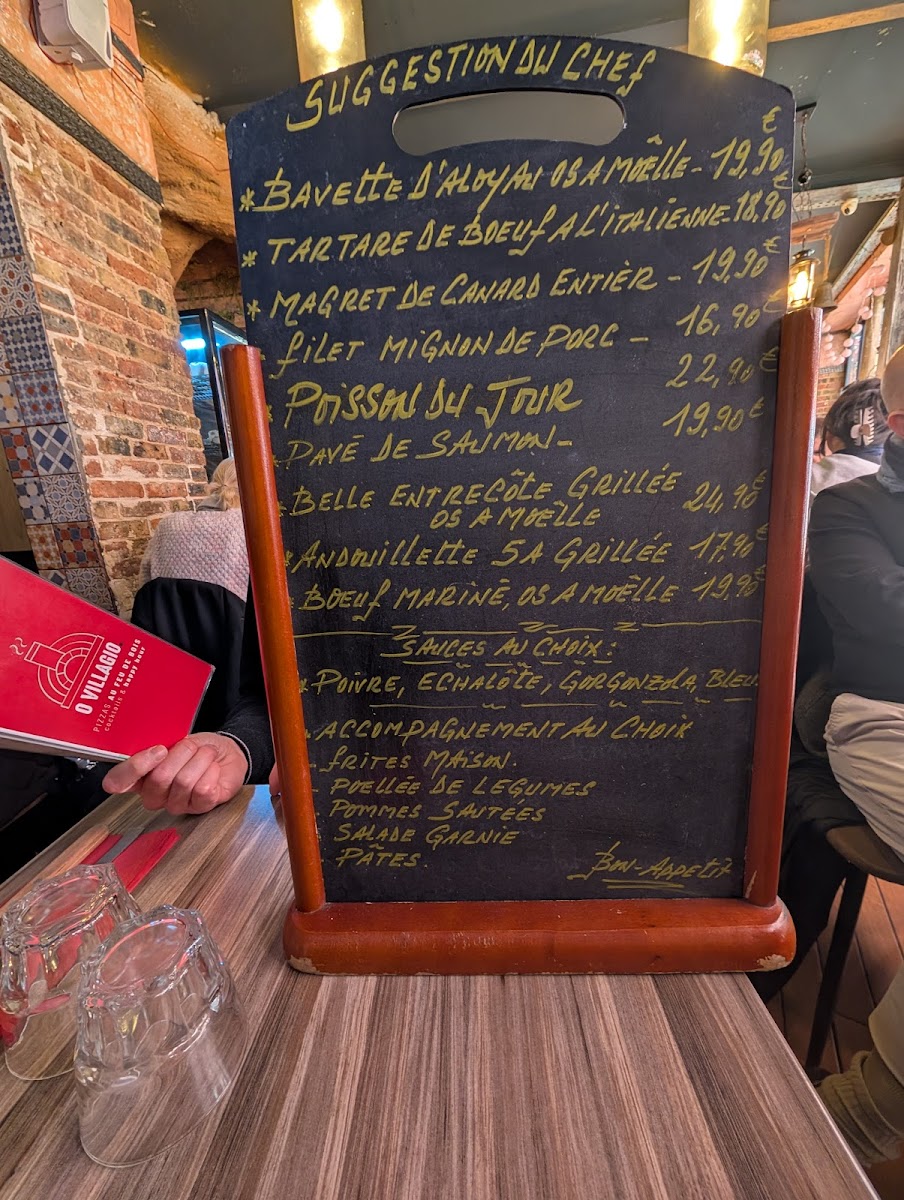 SUGGESTION DU CHEF
€
*BAVETTE D'ALOYAU OS A MOËLLE - 19,90
* TARTARE DE BOEUF A L'ITALIENNE - 18,90€
* MAGRET DE CANARD ENTIÈR - 19,90€
- FILET MIGNON DE PORC - 16,90€
* POISSON DU JOUR 22,90€
- PAVÉ DE SAUMON - 19,90€
* BELLE ENTRECÔTE GRILLÉE
OS A MOËLLE 24,90€
* ANDOUILLETTE 5A GRILLÉE 17,90€
* BOEUF MARINÉ, OS A MOËLLE 19,90€
SAUCES AU CHOIX:
* POIVRE, ECHALÔTE, GORGONZOLA, BLEU
. ACCOMPAGNEMENT AU CHOIX
- FRITES MAISON.
- POELLÉE DE LEGUMES
POMMES SAUTÉES
SALADE GARNIE
- PÂTES.
BON-APPETIT
O VILLAGIO
PIZZAS AU FEU DE BOIS
cocktails & happy hour